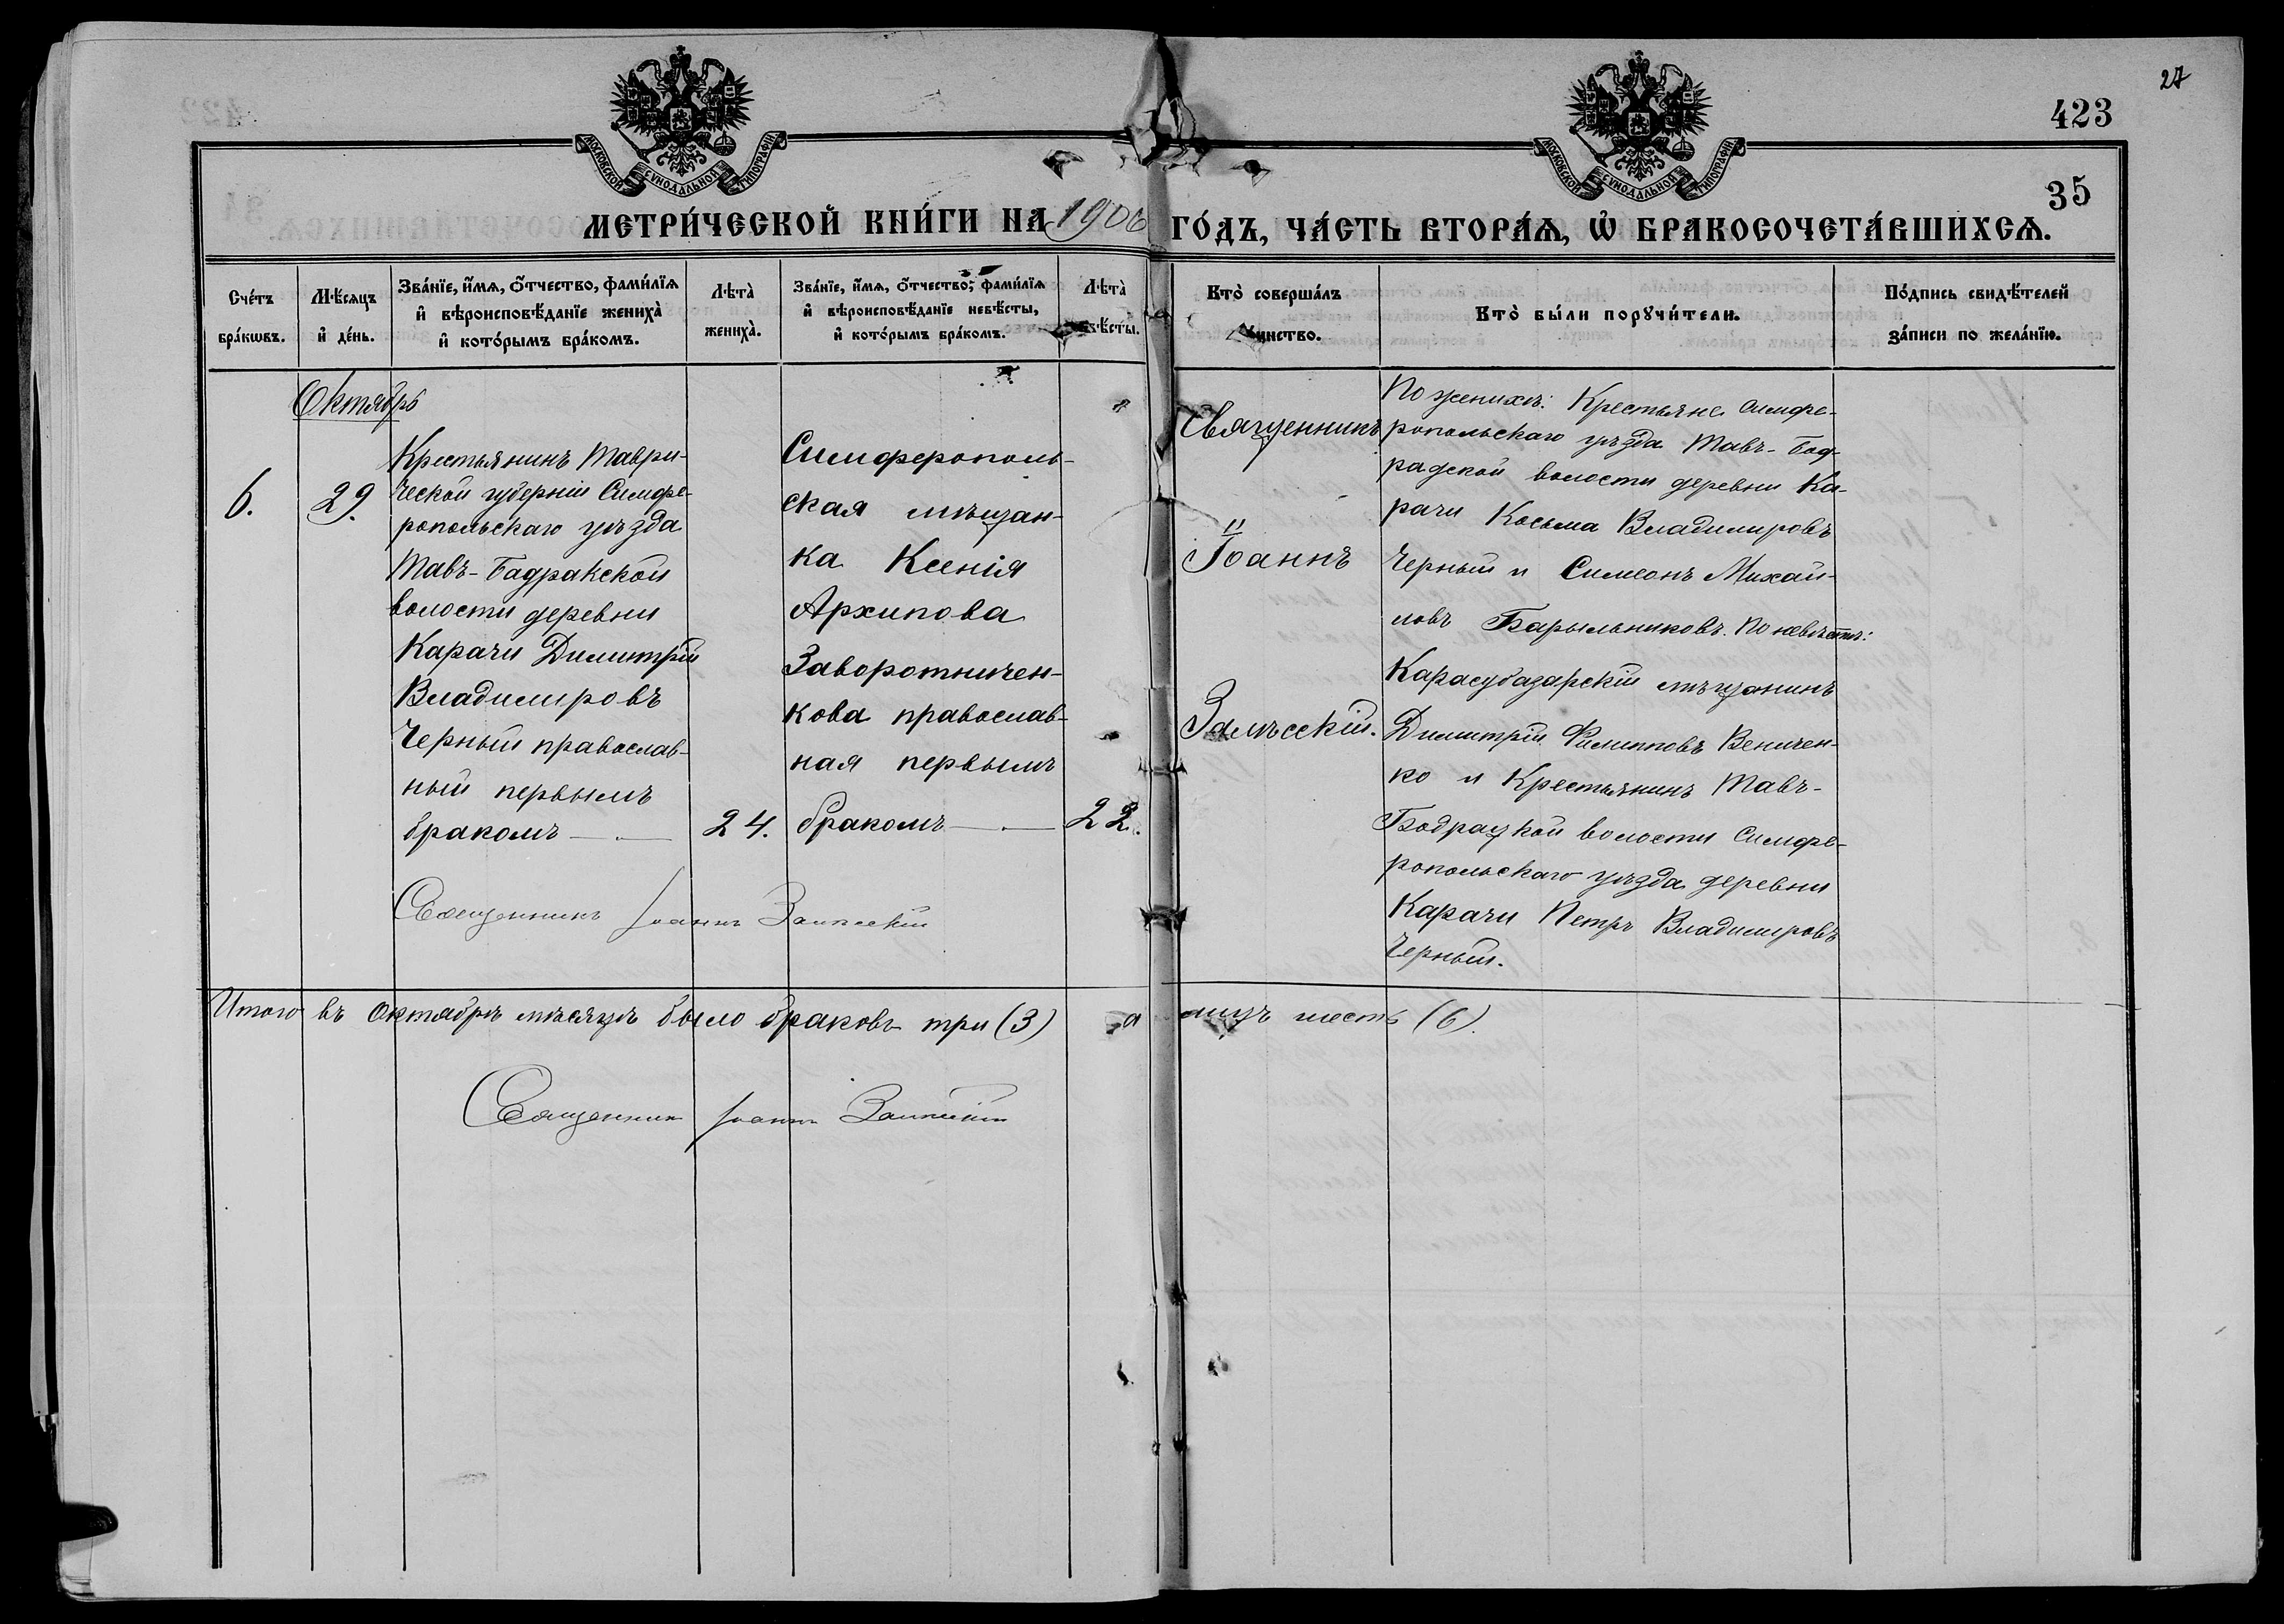 27
423
35
МОСКОВСКОЙ СУНОДАЛЬНОЙ ТИПОГРАФІИ
МОСКОВСКОЙ СУНОДАЛЬНОЙ ТИПОГРАФІИ
МЕТРИ́ЧЕСКОЙ КНИ́ГИ НА 1906 ГО́ДЪ, ЧА́СТЬ ВТОРА́Ѧ, Ѡ҆ БРАКОСОЧЕТА́ВШИХСѦ.
Сче́тъ
бра́кѡвъ.
Мѣ́сѧцъ
и҆ де́нь.
Зва́нїе, и҆́мѧ, ѻ҆́тчество, фами́лїѧ
и҆ вѣроисповѣ́данїе жениха̀
и҆ кото́рымъ бра́комъ.
Лѣта̀
жениха̀.
Зва́нїе, и҆́мѧ, ѻ҆́тчество, фами́лїѧ
и҆ вѣроисповѣ́данїе невѣ́сты,
и҆ кото́рымъ бра́комъ.
Лѣта̀
вѣ́сты.
Кто̀ соверша́лъ
инство.
Кто̀ бы́ли порꙋчи́тели.
По́дпись свидѣ́телей
за́писи по жела́нїю.
Октябрь
6.
29.
Крестьянинъ Таври-
ческой губерніи Симфе-
ропольскаго уѣзда
Тавъ-Бадракской
волости деревни
Карачи Димитрій
Владимировъ
Черный православ-
ный первымъ
бракомъ —.—
24.
Симферополь-
ская мѣщан-
ка Ксенія
Архипова
Заворотничен-
кова православ-
ная первымъ
бракомъ —.—
22.
Священникъ
Іоаннъ
Залѣсскій.
По женихѣ: Крестьяне Симфе-
ропольскаго уѣзда Тавъ-Бод-
радской волости деревни Ка-
рачи Косьма Владимировъ
Черный и Симеонъ Михай-
ловъ Барыльниковъ. По невѣстѣ:
Карасубазарскій мѣщанинъ
Димитрій Филипповъ Величен-
ко и Крестьянинъ Тавъ-
Бодрацкой волости Симфе-
ропольскаго уѣзда деревни
Карачи Петръ Владимировъ
Черный.
Священникъ Іоаннъ Залѣсскій
Итого въ Октябрѣ мѣсяцѣ было браковъ три (3) а лицъ шесть (6).
Священникъ Іоаннъ Залѣсскій